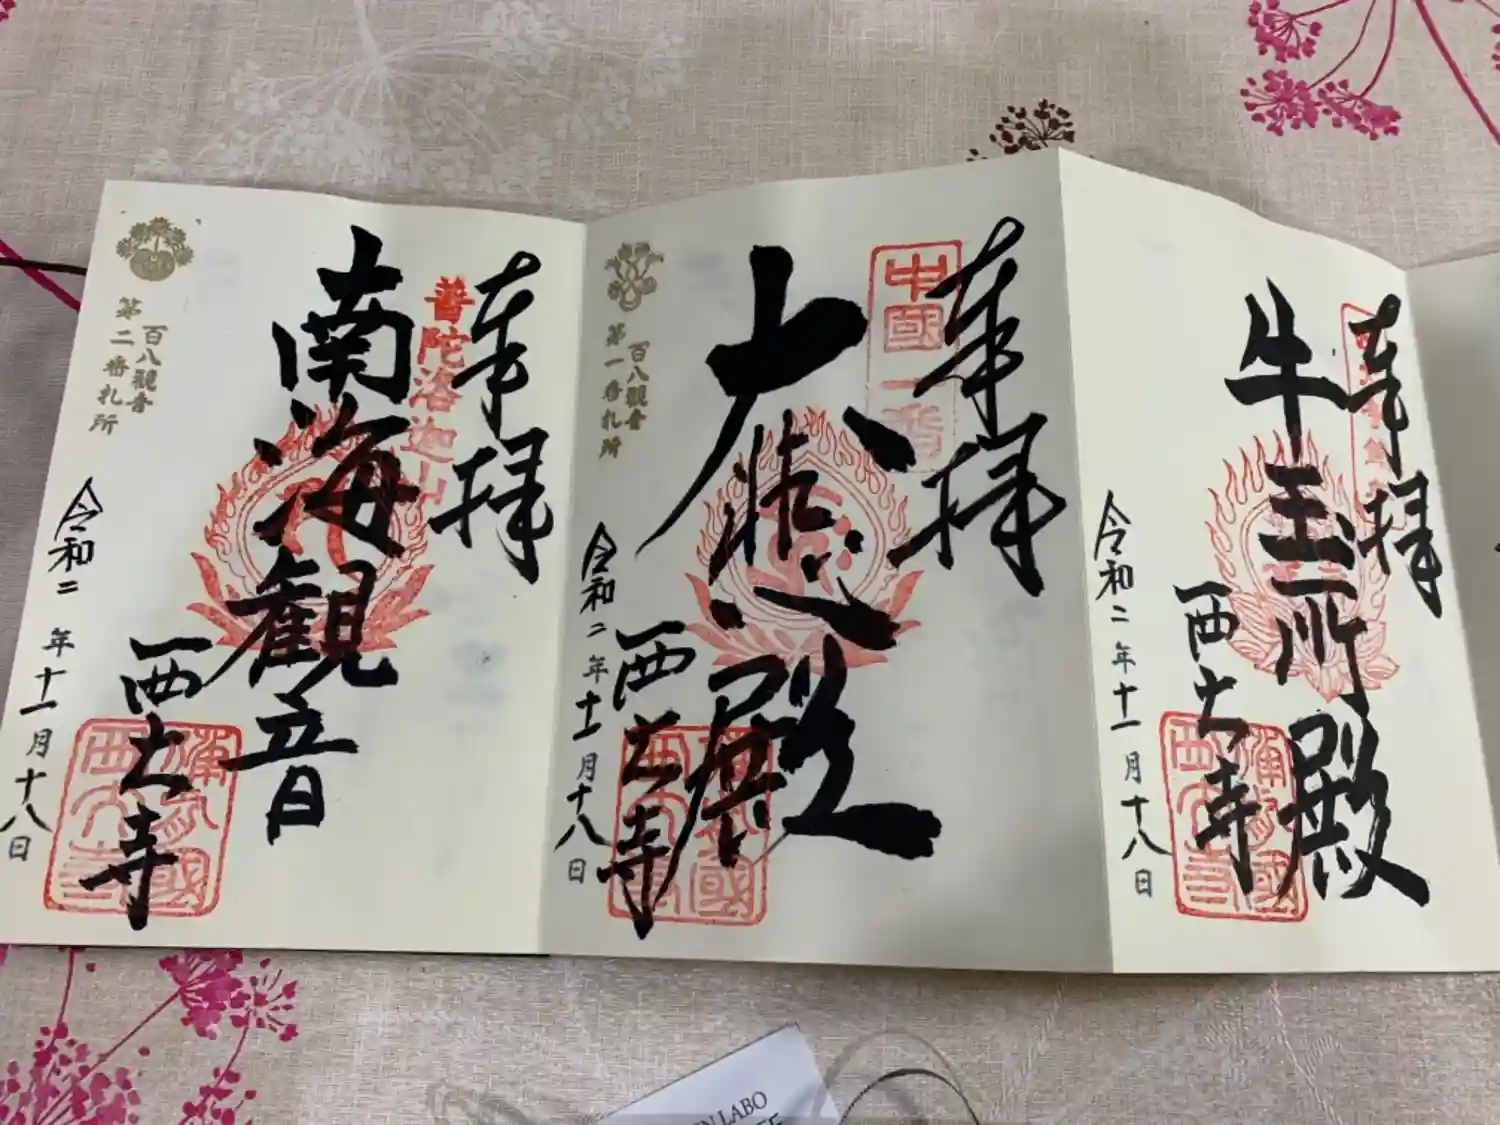 奉拝
中國一番
大悲殿
百八観音
第一番札所
西大寺
令和二年十一月十八日
奉拝
牛玉所殿
西大寺
令和二年十一月十八日
奉拝
普陀洛迦山
南海観音
百八観音
第二番札所
西大寺
令和二年十一月十八日
N LABO